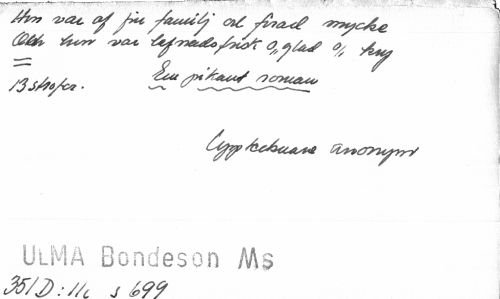 Hon var af fin familj och firad mycke
Och hon var lefnadsfrisk o, glad o, kry
13 strofer. En pikant roman
Upptecknare anonym
ULMA Bondeson Ms
351D:11c s 699